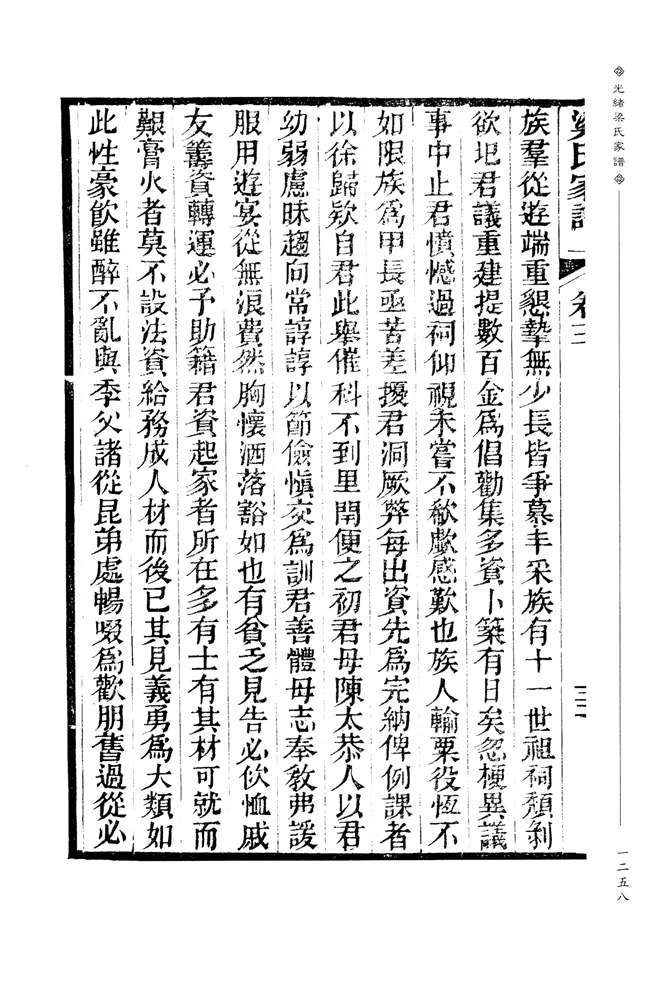 光緒梁氏家譜
梁氏家譜 卷三 三
族羣從遊端重懇摯無少長皆爭慕丰采族有十一世祖祠頹剝
欲圯君議重建提數百金爲倡勸集多資卜築有日矣忽梗異議
事中止君憤憾過祠仰視未嘗不欷歔感歎也族人輸粟役恆不
如限族爲甲長亟苦差擾君洞厥弊每出資先爲完納俾例課者
以徐歸欵自君此舉催科不到里閈便之初君母陳太恭人以君
幼弱慮昧趨向常諄諄以節儉愼交爲訓君善體母志奉敎弗諼
服用遊宴從無浪費然胸懷洒落豁如也有貧乏見告必佽恤戚
友籌資轉運必予助籍君資起家者所在多有士有其材可就而
艱膏火者莫不設法資給務成人材而後已其見義勇爲大類如
此性豪飮雖醉不亂與季父諸從昆弟處暢啜爲歡朋舊過從必
一二五八